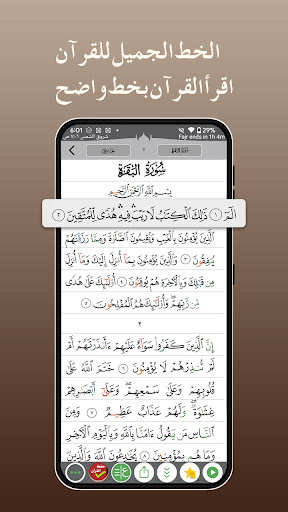 الخط الجميل للقرآن
اقرأ القرآن بخط واضح
6:01
29%
شروق الشمس
Fajr ends in 1h 4m
سُورَةُ البَقَرَةِ
بِسْمِ ٱللَّهِ ٱلرَّحْمَٰنِ ٱلرَّحِيمِ
الٓمٓ ١ ذَٰلِكَ ٱلْكِتَٰبُ لَا رَيْبَ فِيهِ هُدًى لِّلْمُتَّقِينَ ٢
ٱلَّذِينَ يُؤْمِنُونَ بِٱلْغَيْبِ وَيُقِيمُونَ ٱلصَّلَوٰةَ وَمِمَّا رَزَقْنَٰهُمْ
يُنفِقُونَ ٣ وَٱلَّذِينَ يُؤْمِنُونَ بِمَآ أُنزِلَ إِلَيْكَ وَمَآ أُنزِلَ
مِن قَبْلِكَ وَبِٱلْءَاخِرَةِ هُمْ يُوقِنُونَ ٤ أُو۟لَٰٓئِكَ عَلَىٰ هُدًى
مِّن رَّبِّهِمْ وَأُو۟لَٰٓئِكَ هُمُ ٱلْمُفْلِحُونَ ٥
٢
إِنَّ ٱلَّذِينَ كَفَرُوا۟ سَوَآءٌ عَلَيْهِمْ ءَأَنذَرْتَهُمْ أَمْ
لَمْ تُنذِرْهُمْ لَا يُؤْمِنُونَ ٦ خَتَمَ ٱللَّهُ عَلَىٰ
قُلُوبِهِمْ وَعَلَىٰ سَمْعِهِمْ وَعَلَىٰٓ أَبْصَٰرِهِمْ
غِشَٰوَةٌ وَلَهُمْ عَذَابٌ عَظِيمٌ ٧ وَمِنَ
ٱلنَّاسِ مَن يَقُولُ ءَامَنَّا بِٱللَّهِ وَبِٱلْيَوْمِ ٱلْءَاخِرِ